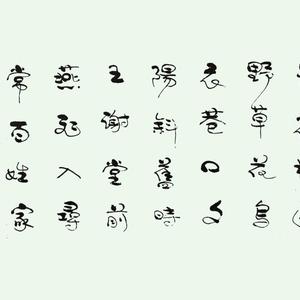 野草花烏
衣巷口夕
陽斜舊時
王謝堂前
燕飛入尋
常百姓家